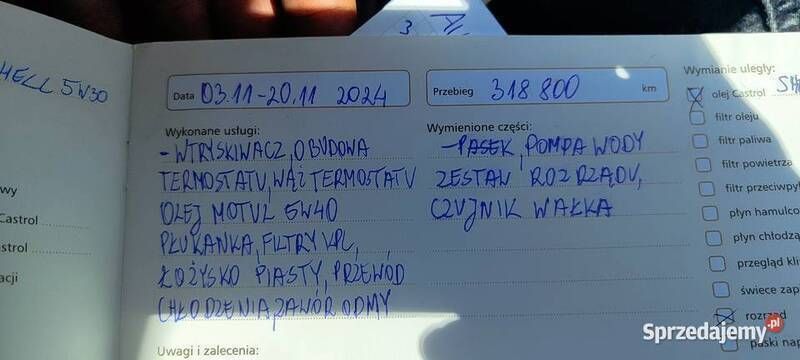 3
HELL 5W30
Data 03.11-20.11 2024
Przebieg 318 800 km
Wymianie uległy:
olej Castrol
filtr oleju
filtr paliwa
filtr powietrza
filtr przeciwpył
płyn hamulco
płyn chłodzą
przegląd kli
świece zap
rozrząd
paski nap
Wykonane usługi:
-WTRYSKIWACZ, OBUDOWA
TERMOSTATU, WĄŻ TERMOSTATU
OLEJ MOTUL 5W40
PŁUKANKA, FILTRY KPL,
ŁOŻYSKO PIASTY, PRZEWÓD
CHŁODZENIA, ZAWÓR ODMY
Wymienione części:
-PASEK, POMPA WODY
ZESTAW ROZRZĄDU,
CZUJNIK WAŁKA
wy
Castrol
strol
acji
Uwagi i zalecenia:
Sprzedajemy.pl